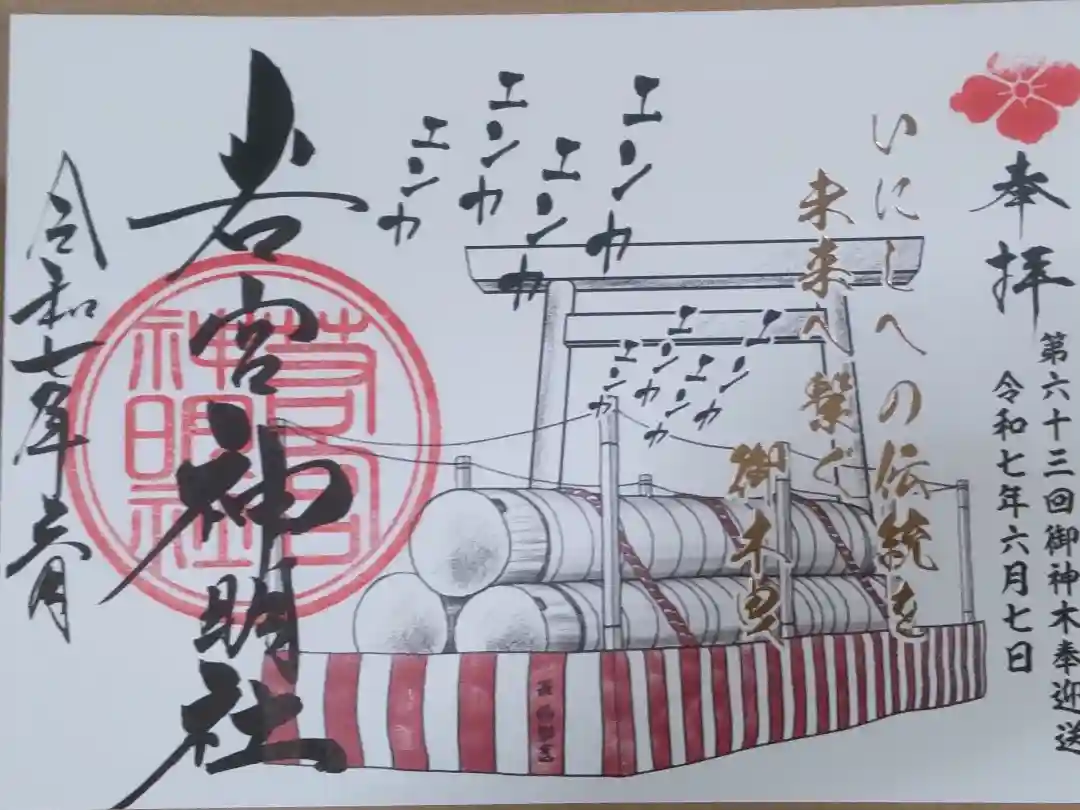 奉拝
第六十三回御神木奉迎送
令和七年六月七日
いにしへの伝統を
未来へ繋ぐ
御木曳
エンヤ
エンヤ
エンヤ
エンヤ
エンヤ
エンヤ
エンヤ
エンヤ
若宮神明社
若宮
神明社
令和七年六月